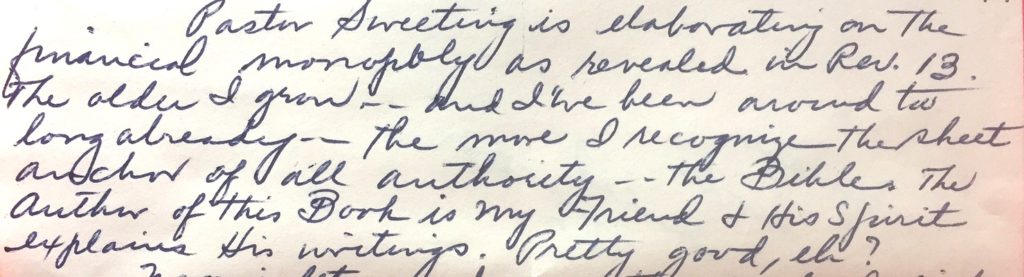 Pastor Sweeting is elaborating on the
financial monopoly as revealed in Rev. 13.
The older I grow -- and I've been around too
long already -- the more I recognize the sheet
anchor of all authority -- the Bible. The
Author of this Book is my Friend & His Spirit
explains His writings. Pretty good, eh?